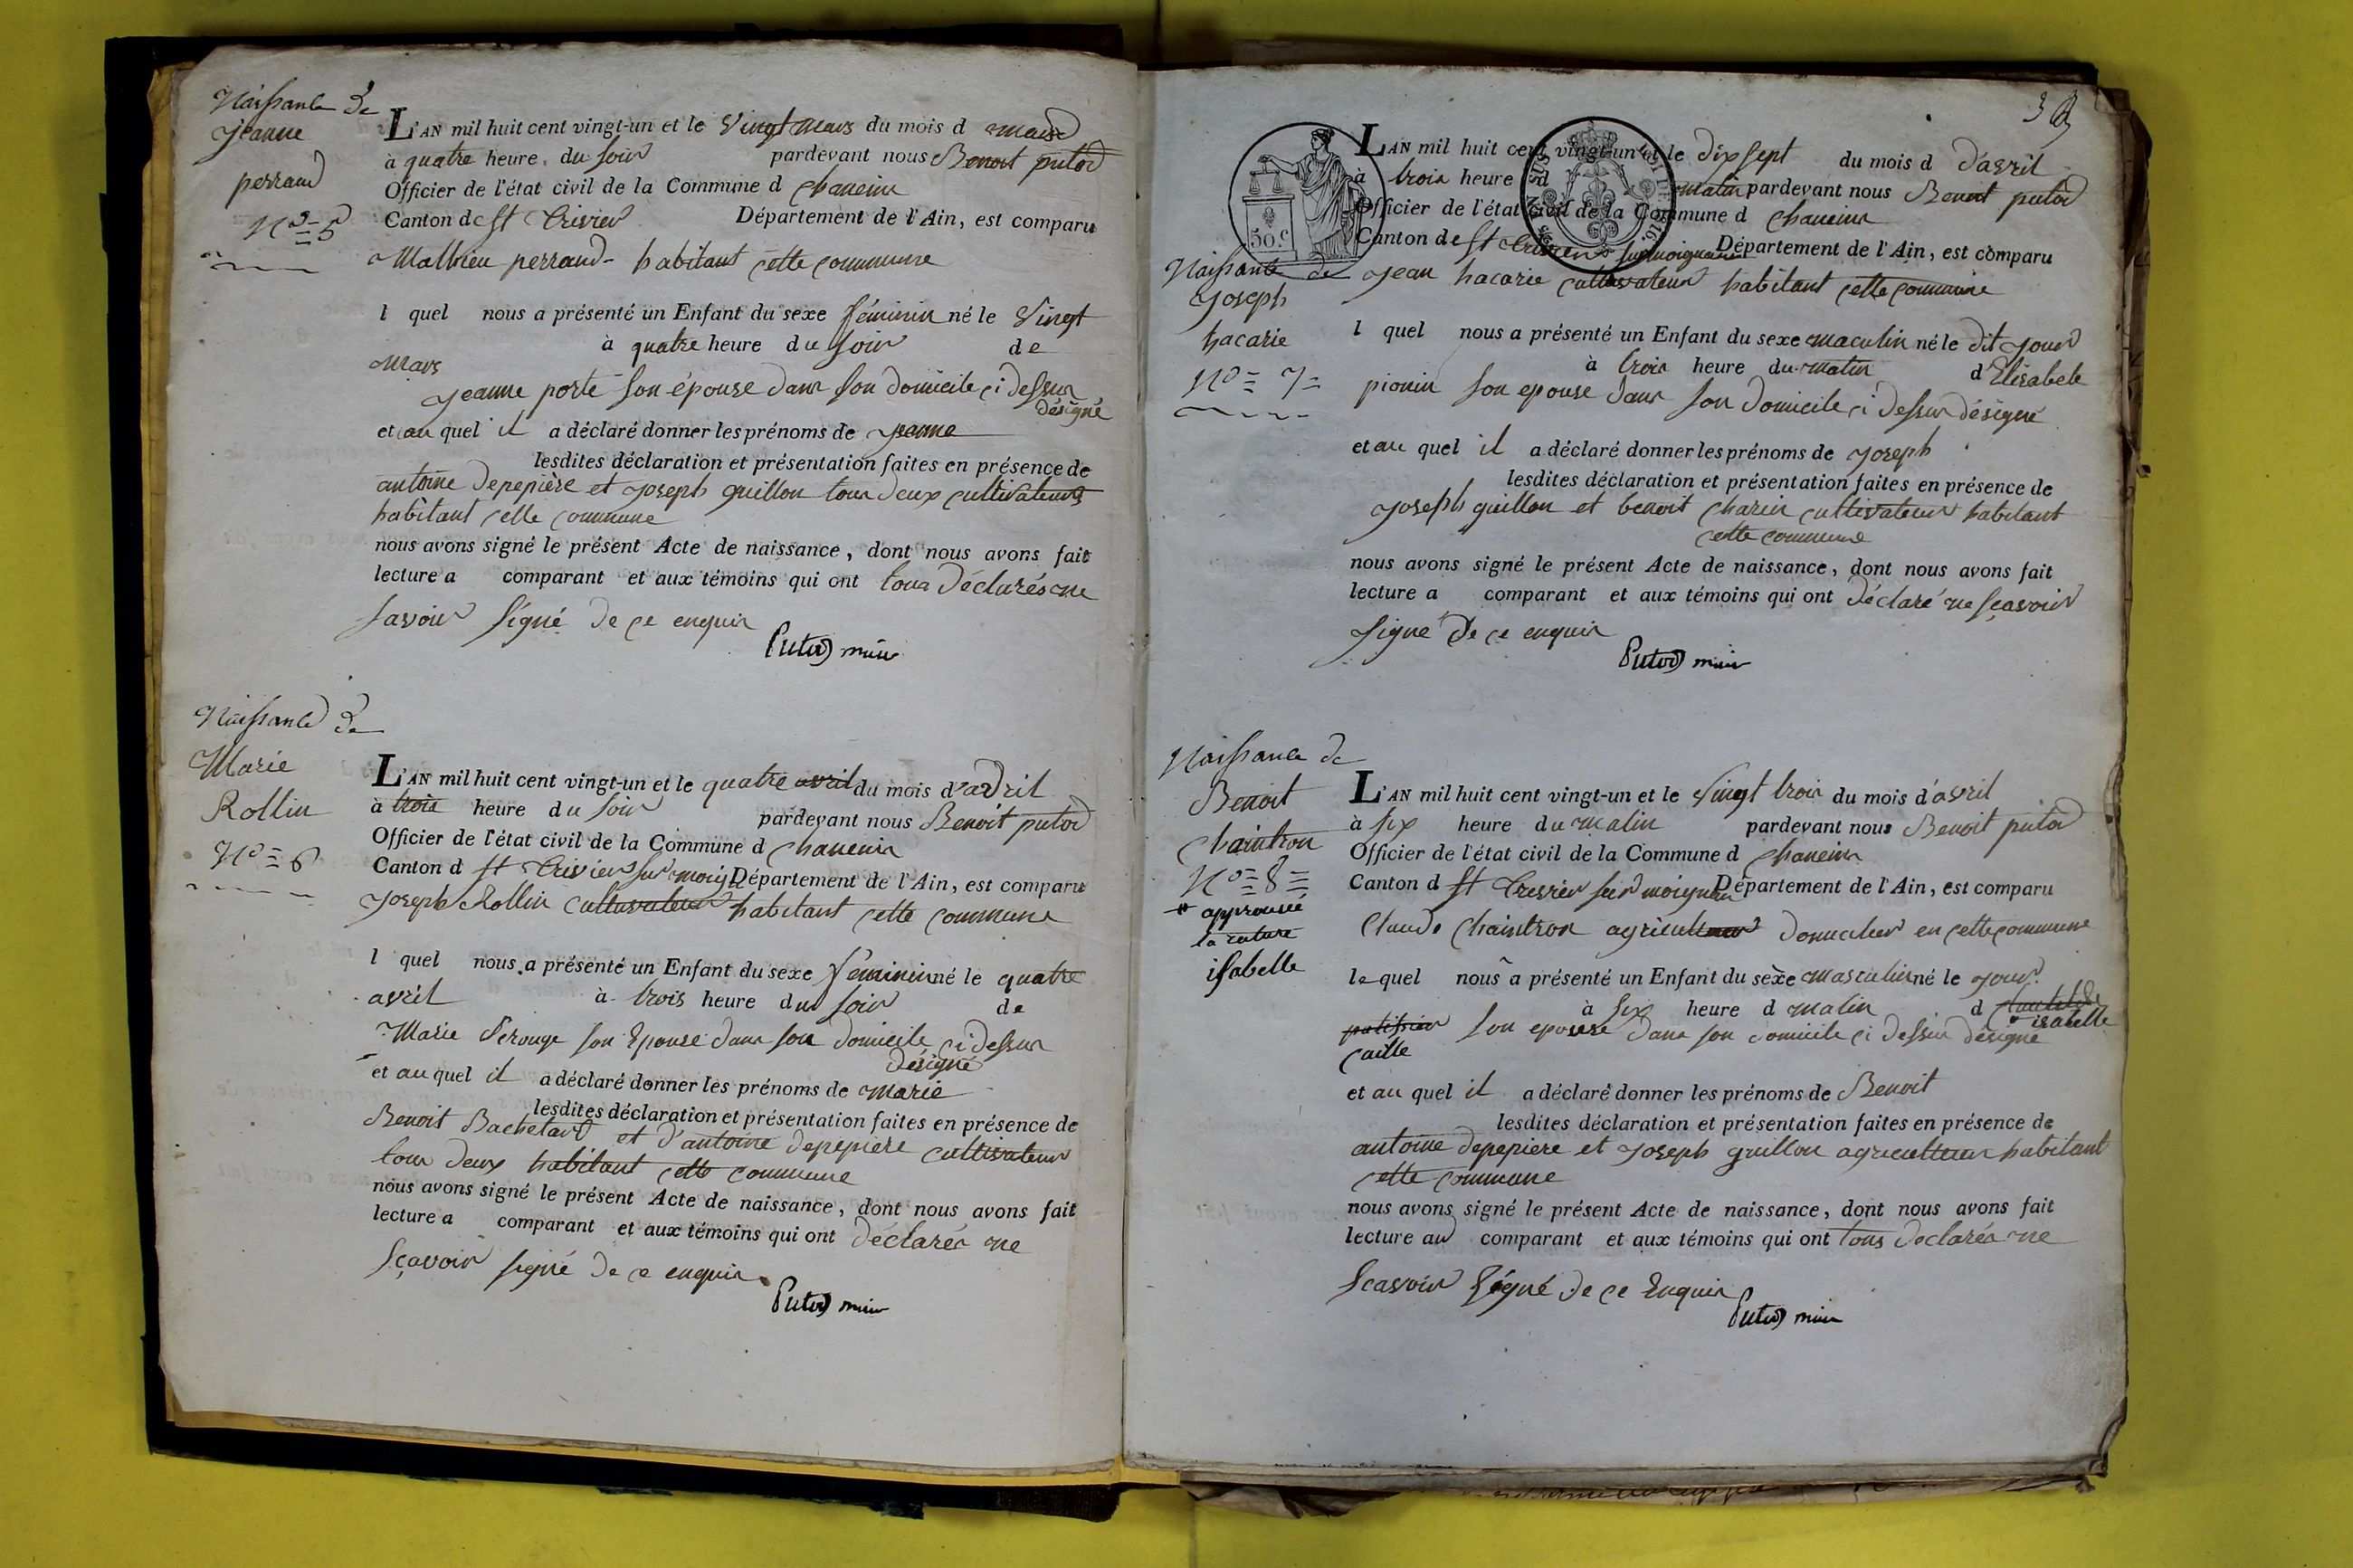 Naissance de
Jeanne
perraud
N° 5
L'AN mil huit cent vingt-un et le vingt mars du mois d mars
à quatre heure du soir pardevant nous Benoit putod
Officier de l'état civil de la Commune d chaneins
Canton de St trivier Département de l'Ain, est comparu
Mathieu perraud habitant cette commune
l quel nous a présenté un Enfant du sexe féminin né le vingt
mars à quatre heure du soir de
jeanne porte son épouse dans son domicile ci dessus
désigné
et au quel il a déclaré donner les prénoms de jeanne
lesdites déclaration et présentation faites en présence de
antoine depepière et joseph guillon tous deux cultivateurs
habitant cette commune
nous avons signé le présent Acte de naissance, dont nous avons fait
lecture a comparant et aux témoins qui ont tous déclarés ne
savoir signé de ce enquis
Putod maire
Naissance de
Marie
Rollin
N° 6
L'AN mil huit cent vingt-un et le quatre avril du mois d'avril
à trois heure du soir pardevant nous Benoit putod
Officier de l'état civil de la Commune d chaneins
Canton d St trivier sur moign Département de l'Ain, est comparu
joseph Rollin cultivateur habitant cette commune
l quel nous a présenté un Enfant du sexe féminin né le quatre
avril à trois heure du soir de
Marie son Epouse dans son domicile ci dessus
désigné
et au quel il a déclaré donner les prénoms de marie
lesdites déclaration et présentation faites en présence de
Benoit Bachelard et d'antoine depepiere cultivateur
tous deux habitant cette commune
nous avons signé le présent Acte de naissance, dont nous avons fait
lecture a comparant et aux témoins qui ont déclarés ne
sçavoir signé de ce enquis
Putod maire
50.c
Naissance de
joseph
hacarie
N° 7
L'AN mil huit cent vingt-un et le dix sept du mois d d'avril
à trois heure d matin pardevant nous Benoit putod
Officier de l'état civil de la Commune d chaneins
Canton de St trivier sur moignans Département de l'Ain, est comparu
jean hacarie cultivateur habitant cette commune
l quel nous a présenté un Enfant du sexe maculin né le dit jour
à trois heure du matin d'Elisabete
pionin son epouse dans son domicile ci dessus désigné
et au quel il a déclaré donner les prénoms de joseph
lesdites déclaration et présentation faites en présence de
joseph guillon et benoit charin cultivateur habitant
cette commune
nous avons signé le présent Acte de naissance, dont nous avons fait
lecture a comparant et aux témoins qui ont déclaré ne sçavoir
signe de ce enquis
Putod maire
Naissance de
Benoit
Chaintron
N° 8
* approuvé
la rature
isabelle
L'AN mil huit cent vingt-un et le vingt trois du mois d'avril
à six heure du matin pardevant nous Benoit putod
Officier de l'état civil de la Commune d chaneins
Canton d St trivier sur moignans Département de l'Ain, est comparu
Claude Chaintron agriculteur domicilier en cette commune
le quel nous a présenté un Enfant du sexe masculin né le jour
à six heure d matin d
* isabelle
son epouse dans son domicile ci dessus désigné
caille
et au quel il a déclaré donner les prénoms de Benoit
lesdites déclaration et présentation faites en présence de
antoine depepiere et joseph guillon agriculteur habitant
cette commune
nous avons signé le présent Acte de naissance, dont nous avons fait
lecture au comparant et aux témoins qui ont tous déclarés ne
scavoir signé de ce Enquis
Putod maire